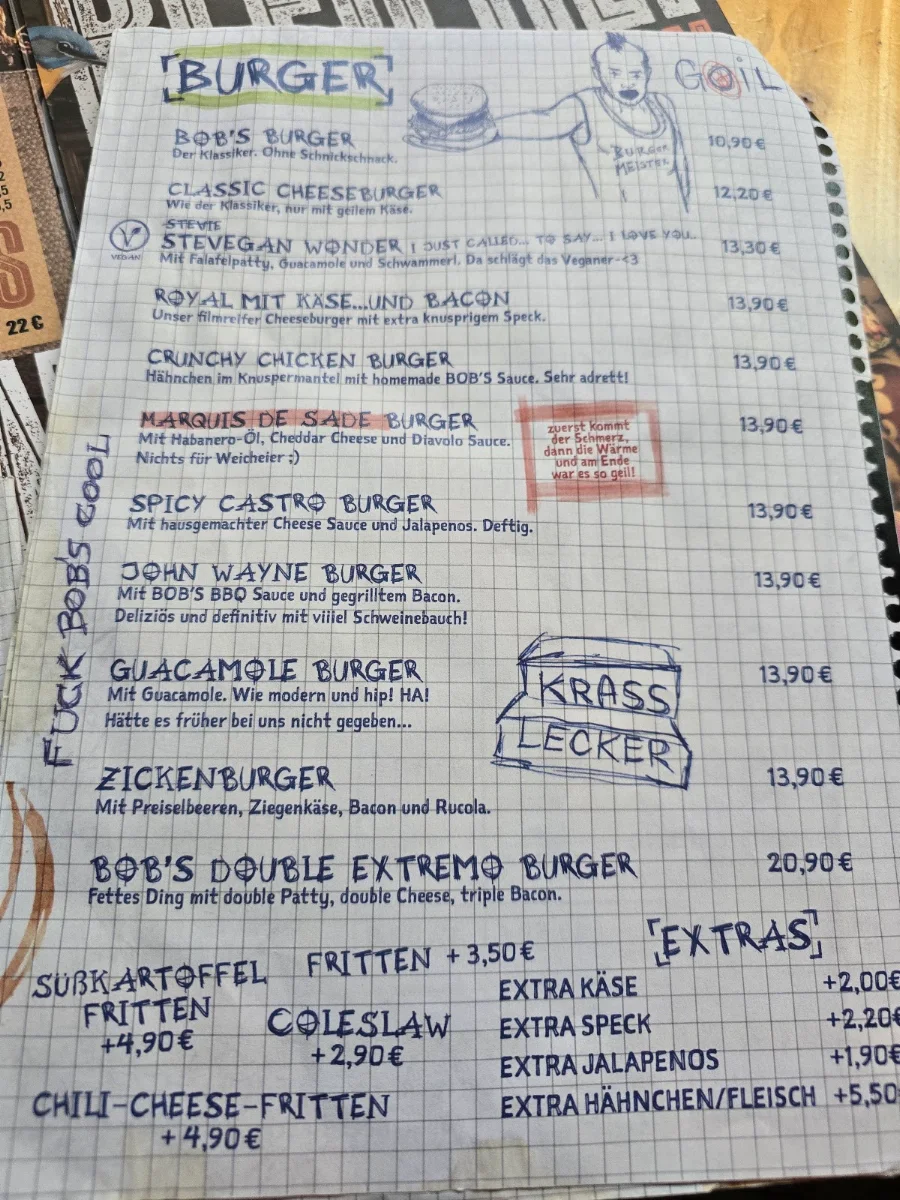 BURGER
GOIL
BURGER
MEISTER
BOB'S BURGER 10,90 €
Der Klassiker. Ohne Schnickschnack.
CLASSIC CHEESEBURGER 12,20 €
Wie der Klassiker, nur mit geilem Käse.
STEVIE
VEGAN
STEVEGAN WONDER I JUST CALLED... TO SAY... I LOVE YOU... 13,30 €
Mit Falafelpatty, Guacamole und Schwammerl. Da schlägt das Veganer-<3
ROYAL MIT KÄSE...UND BACON 13,90 €
Unser filmreifer Cheeseburger mit extra knusprigem Speck.
CRUNCHY CHICKEN BURGER 13,90 €
Hähnchen im Knuspermantel mit homemade BOB'S Sauce. Sehr adrett!
MARQUIS DE SADE BURGER 13,90 €
Mit Habanero-Öl, Cheddar Cheese und Diavolo Sauce.
Nichts für Weicheier ;)
zuerst kommt
der Schmerz,
dann die Wärme
und am Ende
war es so geil!
SPICY CASTRO BURGER 13,90 €
Mit hausgemachter Cheese Sauce und Jalapenos. Deftig.
JOHN WAYNE BURGER 13,90 €
Mit BOB'S BBQ Sauce und gegrilltem Bacon.
Deliziös und definitiv mit viiiel Schweinebauch!
GUACAMOLE BURGER 13,90 €
Mit Guacamole. Wie modern und hip! HA!
Hätte es früher bei uns nicht gegeben...
KRASS
LECKER
FUCK BOB'S COOL
ZICKENBURGER 13,90 €
Mit Preiselbeeren, Ziegenkäse, Bacon und Rucola.
BOB'S DOUBLE EXTREMO BURGER 20,90 €
Fettes Ding mit double Patty, double Cheese, triple Bacon.
SÜßKARTOFFEL
FRITTEN
+4,90 €
FRITTEN +3,50 €
COLESLAW
+2,90 €
CHILI-CHEESE-FRITTEN
+4,90 €
EXTRAS
EXTRA KÄSE +2,00 €
EXTRA SPECK +2,20 €
EXTRA JALAPENOS +1,90 €
EXTRA HÄHNCHEN/FLEISCH +5,50
22 €